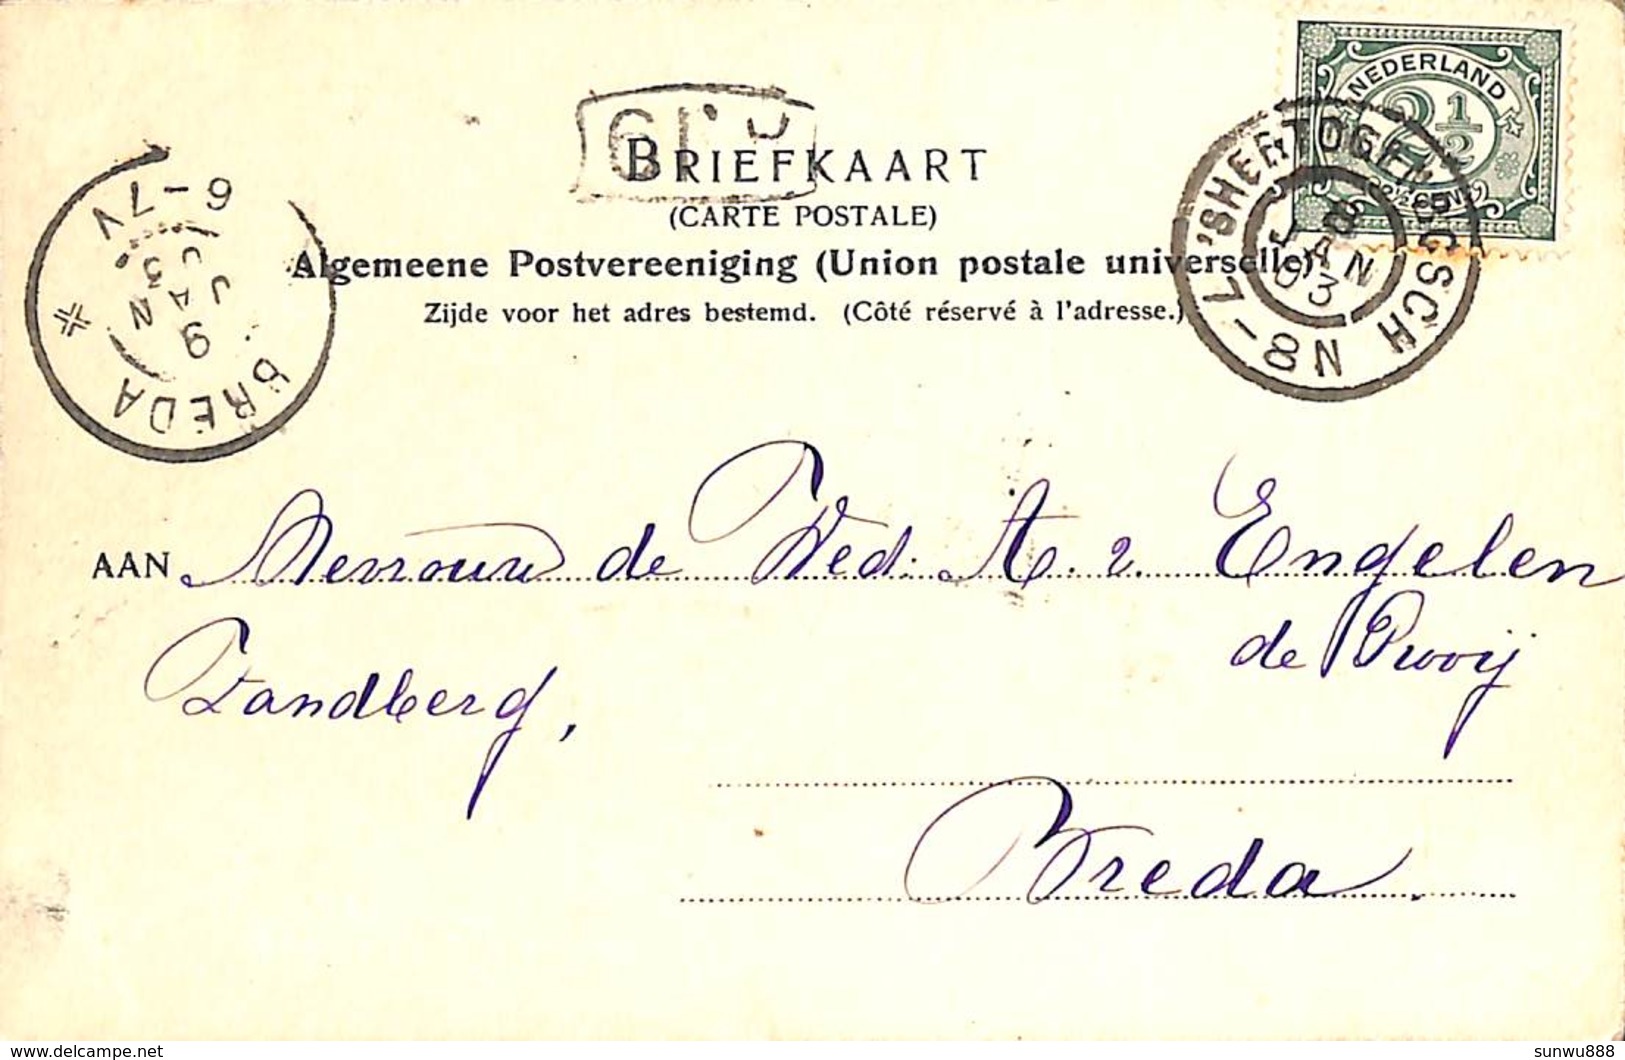 NEDERLAND
2½
2½ CENT
'SHERTOGENBOSCH
8 JAN 03
7-8N
BREDA
9 JAN 03
6-7V
BRIEFKAART
(CARTE POSTALE)
Algemeene Postvereeniging (Union postale universelle)
Zijde voor het adres bestemd. (Côté réservé à l'adresse.)
AAN Mevrouw de Wed. A. v. Engelen
de Prooij
Zandberg,
Breda.
© sunwu888 delcampe.net
sunwu888